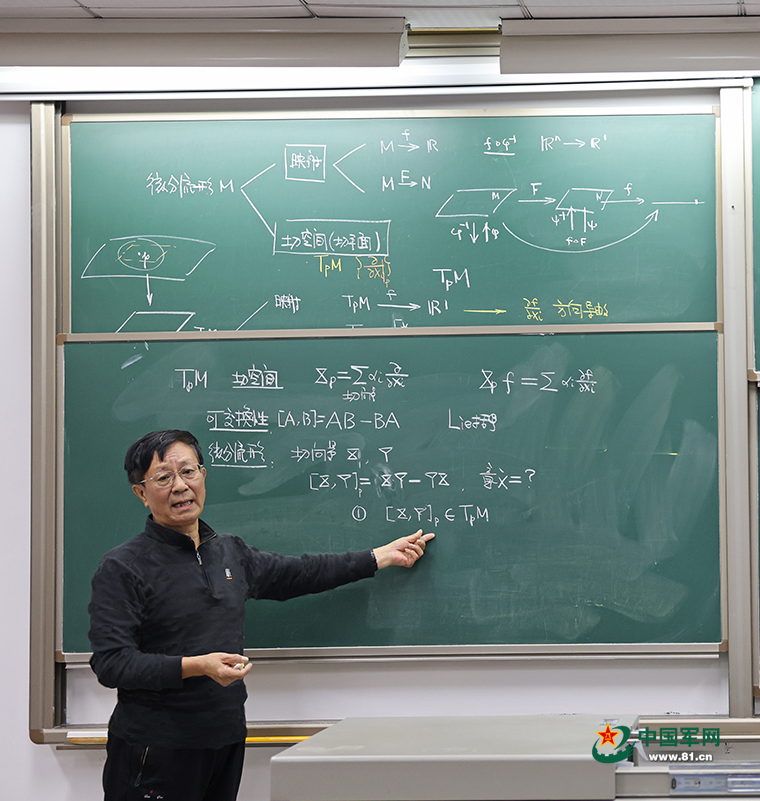 微分流形 M
映射
M →f R
M →F N
f∘φ⁻¹ ℝⁿ → ℝ¹
M F N f
φ⁻¹ φ ψ⁻¹ ψ
f∘F
切空间(切平面)
TpM {∂/∂xi}p
TpM
p
映射 TpM →f ℝ¹ → ∂f/∂xi 方向导数
TpM 切空间 Xp=∑αi ∂/∂xi Xp f = ∑ αi ∂f/∂xi
切向量
可交换性 [A,B]=AB-BA Lie括号
微分流形: 切向量 X, Y
[X,Y]p = XY-YX, ẋ=?
① [X,Y]p ∈ TpM
中国军网
www.81.cn